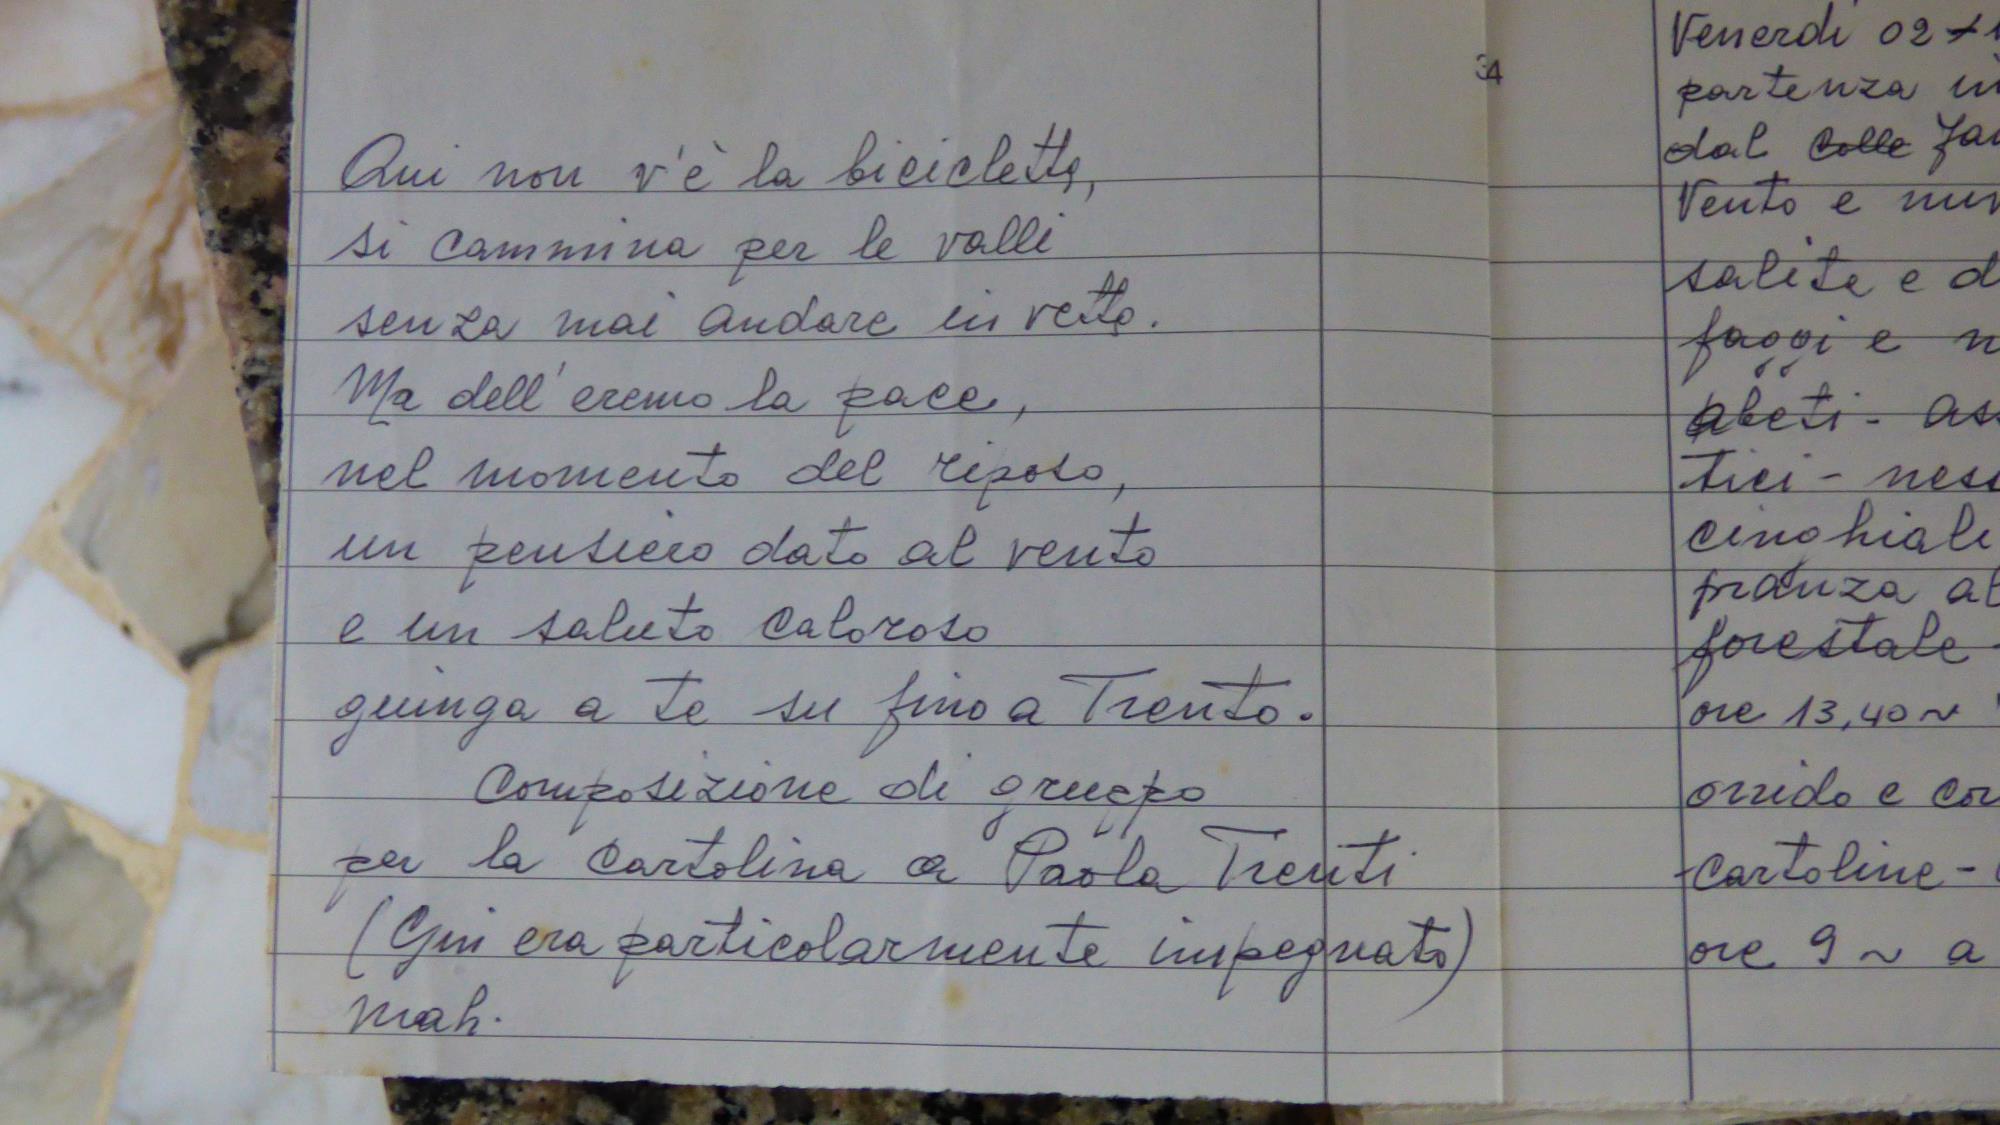 Qui non v'è la bicicletta,
si cammina per le valli
senza mai andare in vetta.
Ma dell'eremo la pace,
nel momento del riposo,
un pensiero dato al vento
e un saluto caloroso
giunga a te su fino a Trento.
Composizione di gruppo
per la cartolina a Paola Trenti
(Gin era particolarmente impegnato)
mah.
34
Venerdì 02
partenza in
dal Colle
Vento e
salite e d
faggi e n
abeti - as
tici - ness
cinghiali
pranza al
forestale -
ore 13,40 ~
orrido e con
cartoline -
ore 9 ~ a